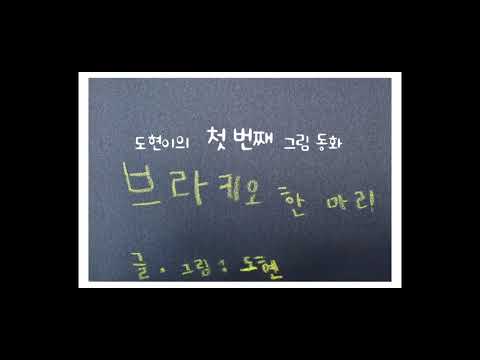 도현이의 첫 번째 그림 동화
브라키오 한 마리
글 . 그림 : 도현